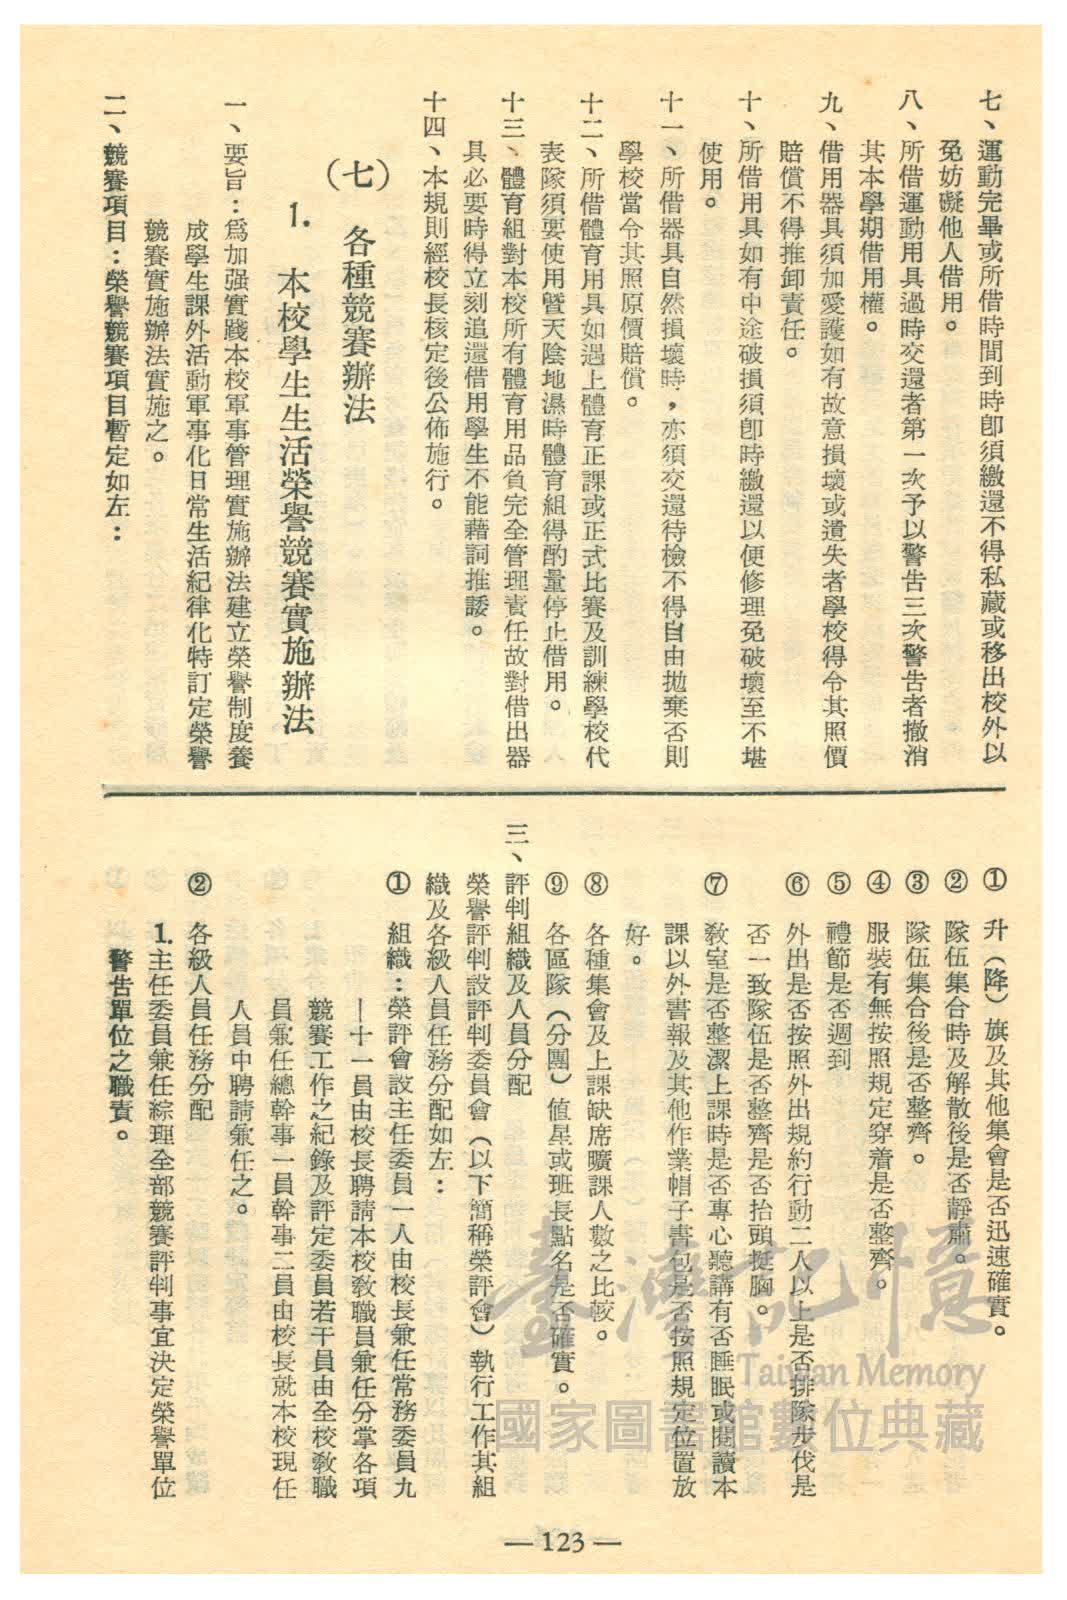 七、運動完畢或所借時間到時卽須繳還不得私藏或移出校外以
免妨礙他人借用。
八、所借運動用具過時交還者第一次予以警告三次警告者撤消
其本學期借用權。
九、借用器具須加愛護如有故意損壞或遺失者學校得令其照價
賠償不得推卸責任。
十、所借用具如有中途破損須卽時繳還以便修理免破壞至不堪
使用。
十一、所借器具自然損壞時，亦須交還待檢不得自由拋棄否則
學校當令其照原價賠償。
十二、所借體育用具如遇上體育正課或正式比賽及訓練學校代
表隊須要使用暨天陰地濕時體育組得酌量停止借用。
十三、體育組對本校所有體育用品負完全管理責任故對借出器
具必要時得立刻追還借用學生不能藉詞推諉。
十四、本規則經校長核定後公佈施行。
（七）　各種競賽辦法
1.　本校學生生活榮譽競賽實施辦法
一、要旨：爲加强實踐本校軍事管理實施辦法建立榮譽制度養
成學生課外活動軍事化日常生活紀律化特訂定榮譽
競賽實施辦法實施之。
二、競賽項目：榮譽競賽項目暫定如左：
①　升（降）旗及其他集會是否迅速確實。
②　隊伍集合時及解散後是否靜肅。
③　隊伍集合後是否整齊。
④　服裝有無按照規定穿着是否整齊。
⑤　禮節是否週到
⑥　外出是否按照外出規約行動二人以上是否排隊步伐是
否一致隊伍是否整齊是否抬頭挺胸。
⑦　敎室是否整潔上課時是否專心聽講有否睡眠或閱讀本
課以外書報及其他作業帽子書包是否按照規定位置放
好。
⑧　各種集會及上課缺席曠課人數之比較。
⑨　各區隊（分團）値星或班長點名是否確實。
三、評判組織及人員分配
榮譽評判設評判委員會（以下簡稱榮評會）執行工作其組
織及各級人員任務分配如左：
①　組織：榮評會設主任委員一人由校長兼任常務委員九
—十一員由校長聘請本校敎職員兼任分掌各項
競賽工作之紀錄及評定委員若干員由全校敎職
員兼任總幹事一員幹事二員由校長就本校現任
人員中聘請兼任之。
②　各級人員任務分配
1.主任委員兼任綜理全部競賽評判事宜決定榮譽單位
警告單位之職責。
—123—
臺灣記憶
Taiwan Memory
國家圖書館數位典藏